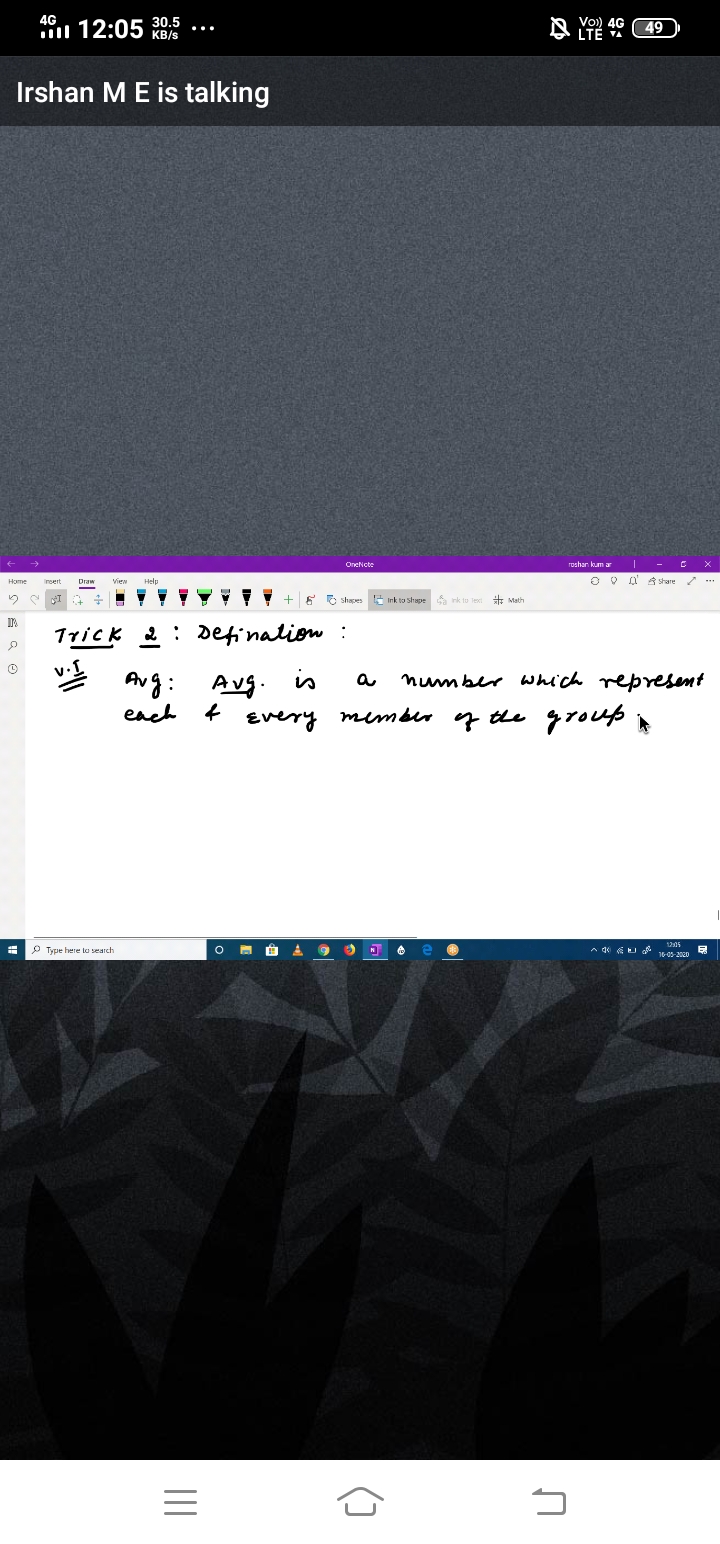 4G 12:05 30.5 KB/s ... Vo)) LTE 4G 49
Irshan M E is talking
OneNote roshan kumar
Home Insert Draw View Help Share
Shapes Ink to Shape Ink to Text Math
Trick 2 : Defination :
V.I
Avg : Avg. is a number which represent
each & every member of the group.
Type here to search
12:05
16-05-2020